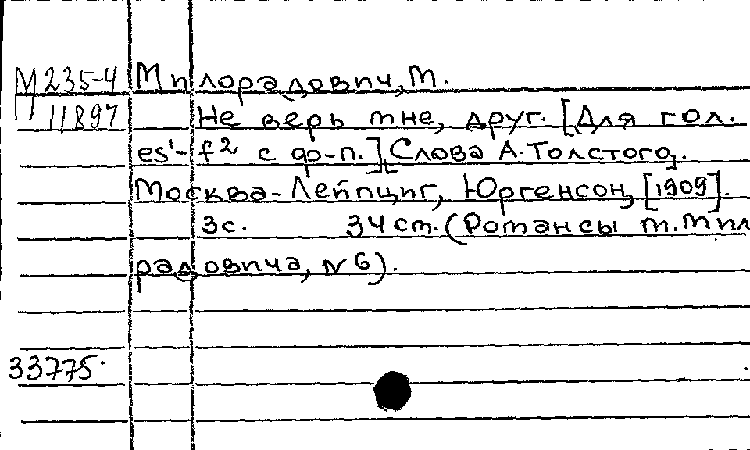 М 235-4 Милорадович, М.
11897 Не верь мне, друг. [Для гол.
es¹-f² с ф-п.] [Слова А. Толстого].
Москва-Лейпциг, Юргенсон, [1909].
3с. 34 ст. (Романсы М. Мил
радовича, № 6).
33775.